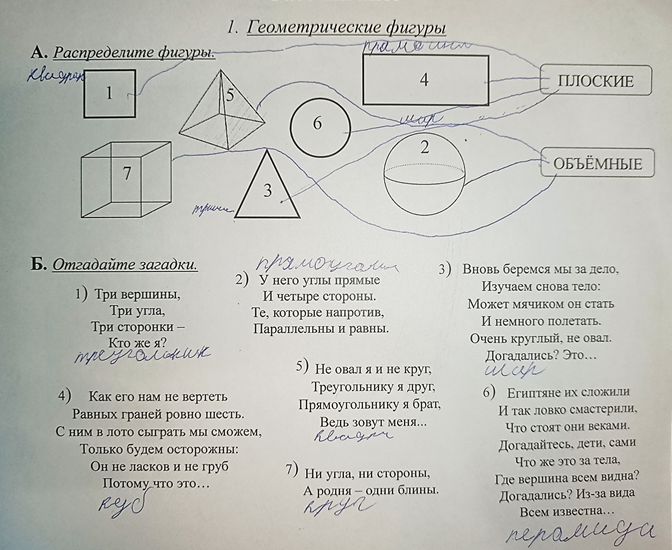 1. Геометрические фигуры
А. Распределите фигуры.
1
5
4
ПЛОСКИЕ
6
шар
2
ОБЪЁМНЫЕ
7
3
Б. Отгадайте загадки.
1) Три вершины,
Три угла,
Три сторонки –
Кто же я?
треугольник
2) У него углы прямые
И четыре стороны.
Те, которые напротив,
Параллельны и равны.
3) Вновь беремся мы за дело,
Изучаем снова тело:
Может мячиком он стать
И немного полетать.
Очень круглый, не овал.
Догадались? Это…
шар
4) Как его нам не вертеть
Равных граней ровно шесть.
С ним в лото сыграть мы сможем,
Только будем осторожны:
Он не ласков и не груб
Потому что это…
куб
5) Не овал я и не круг,
Треугольнику я друг,
Прямоугольнику я брат,
Ведь зовут меня...
6) Египтяне их сложили
И так ловко смастерили,
Что стоят они веками.
Догадайтесь, дети, сами
Что же это за тела,
Где вершина всем видна?
Догадались? Из-за вида
Всем известна…
перамида
7) Ни угла, ни стороны,
А родня – одни блины.
круг